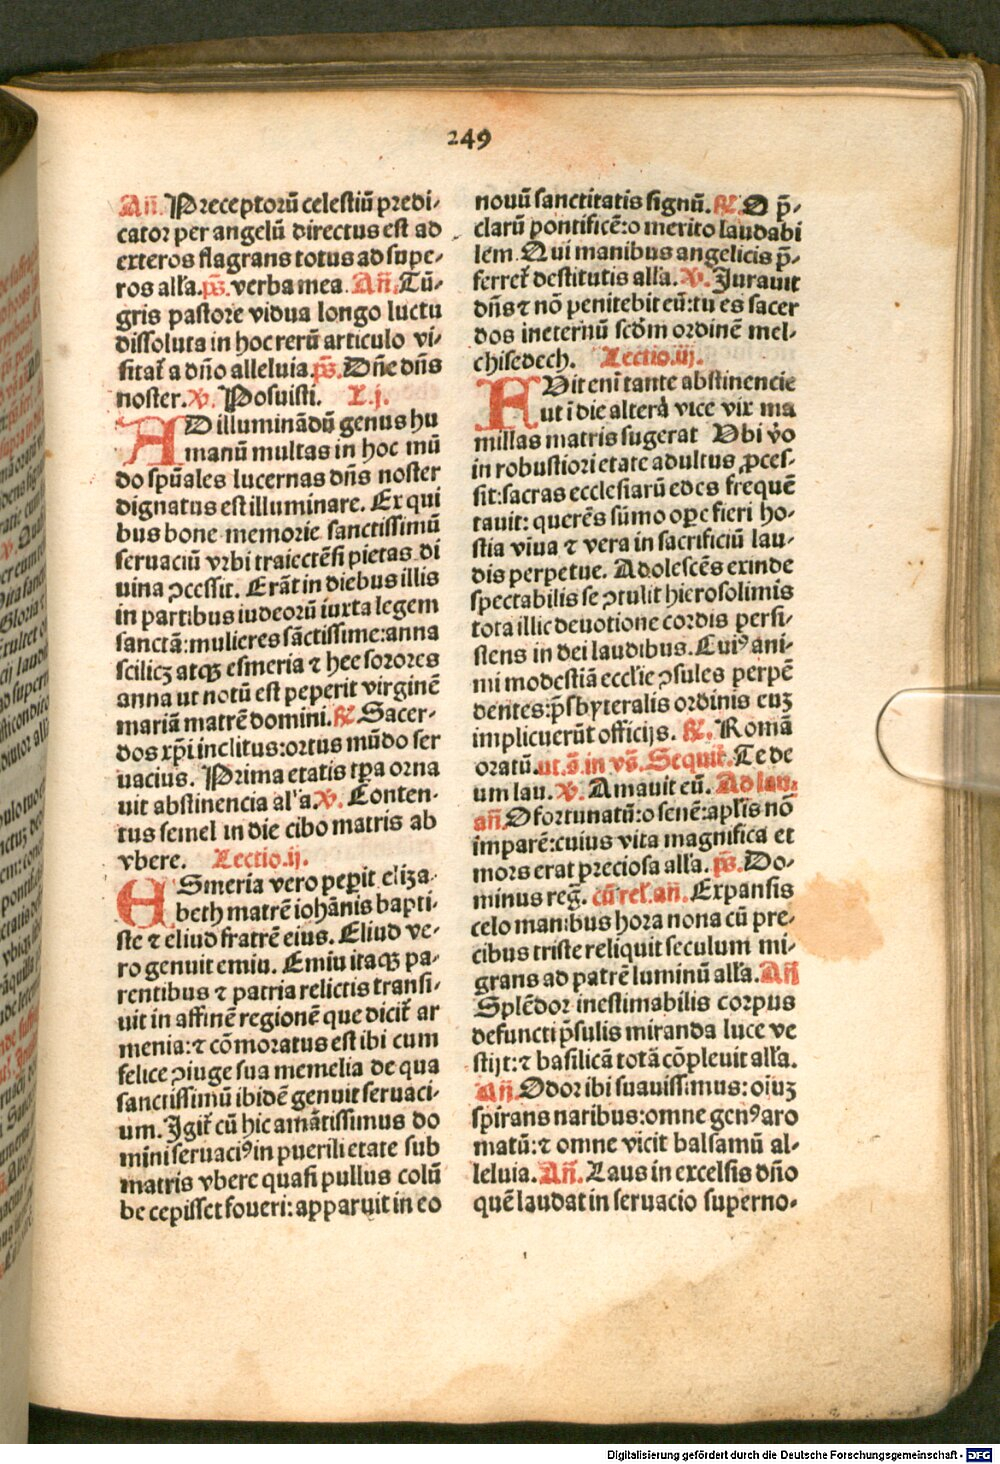 249
Añ. Preceptorũ celestiũ predi-
cator per angelũ directus est ad
exteros flagrans totus ad supe-
ros alľa. pš. verba mea. Añ. Tũ-
gris pastore vidua longo luctu
dissoluta in hoc rerũ articulo vi-
sitat̄ a dño alleluia. pš. Dñe dñs
noster. ℣. Posuisti. L.j.
AD illuminãdũ genus hu
manũ multas in hoc mũ
do sp̃uales lucernas dñs noster
dignatus est illuminare. Ex qui
bus bone memorie sanctissimũ
seruaciũ vrbi traiectẽsi pietas di
uina ꝯcessit. Erãt in diebus illis
in partibus iudeorũ iuxta legem
sanctã: mulieres sãctissime: anna
scilicꝫ atqꝫ esmeria ⁊ hee sorores
anna ut notũ est peperit virginẽ
mariã matrẽ domini. ℟. Sacer-
dos xp̃i inclitus: ortus mũdo ser
uacius. Prima etatis tp̃a orna
uit abstinencia al'a. ℣. Conten-
tus semel in die cibo matris ab
vbere. Lectio.ij.
ESmeria vero pep̱it eliza-
beth matrẽ iohãnis bapti-
ste ⁊ eliud fratrẽ eius. Eliud ve-
ro genuit emiu. Emiu itaqꝫ pa-
rentibus ⁊ patria relictis transi-
uit in affinẽ regionẽ que dicit̄ ar
menia: ⁊ cõmoratus est ibi cum
felice ꝯiuge sua memelia de qua
sanctissimũ ibidẽ genuit seruaci-
um. Igit̄ cũ hic amãtissimus do
mini seruaciꝰ in puerili etate sub
matris vbere quasi pullus colũ
be cepisset foueri: apparuit in eo
nouũ sanctitatis signũ. ℟. O p̃-
clarũ pontificẽ: o merito laudabi
lem Qui manibus angelicis p̃-
ferret̄ destitutis alľa. ℣. Jurauit
dñs ⁊ nõ penitebit eũ: tu es sacer
dos ineternũ scd̃m ordinẽ mel-
chisedech. Lectio.iij.
FVit eni tante abstinencie
ut ĩ die altera vice vix ma
millas matris sugerat Vbi vo
in robustiori etate adultus ꝓces-
sit: sacras ecclesiarũ edes frequẽ
tauit: querẽs sũmo oꝑe fieri ho-
stia viua ⁊ vera in sacrificiũ lau-
dis perpetue. Adolescẽs exinde
spectabilis se ꝯtulit hierosolimis
tota illic deuotione cordis persi-
stens in dei laudibus. Cuiꝰ ani-
mi modestiã eccľie ꝯsules perpẽ
dentes: p̃sbyteralis ordinis euꝫ
implicuerũt officijs. ℟. Romã
oratũ. ut.s̃. in vš. Sequit̄. Te de
um lau. ℣. Amauit eũ. Ad lau.
añ. O fortunatũ: o senẽ: apľis nõ
imparẽ: cuius vita magnifica et
mors erat preciosa alľa. pš. Do-
minus reg̃. cũ rel. añ. Expansis
celo manibus hora nona cũ pre-
cibus triste reliquit seculum mi-
grans ad patrẽ luminũ alľa. Añ
Splẽdor inestimabilis corpus
defuncti p̃sulis miranda luce ve
stijt: ⁊ basilicã totã cõpleuit alľa.
Añ. Odor ibi suauissimus: oĩuꝫ
spirans naribus: omne genꝰ aro
matũ: ⁊ omne vicit balsamũ al-
leluia. Añ. Laus in excelsis dño
quẽ laudat in seruacio superno-
Digitalisierung gefördert durch die Deutsche Forschungsgemeinschaft - DFG